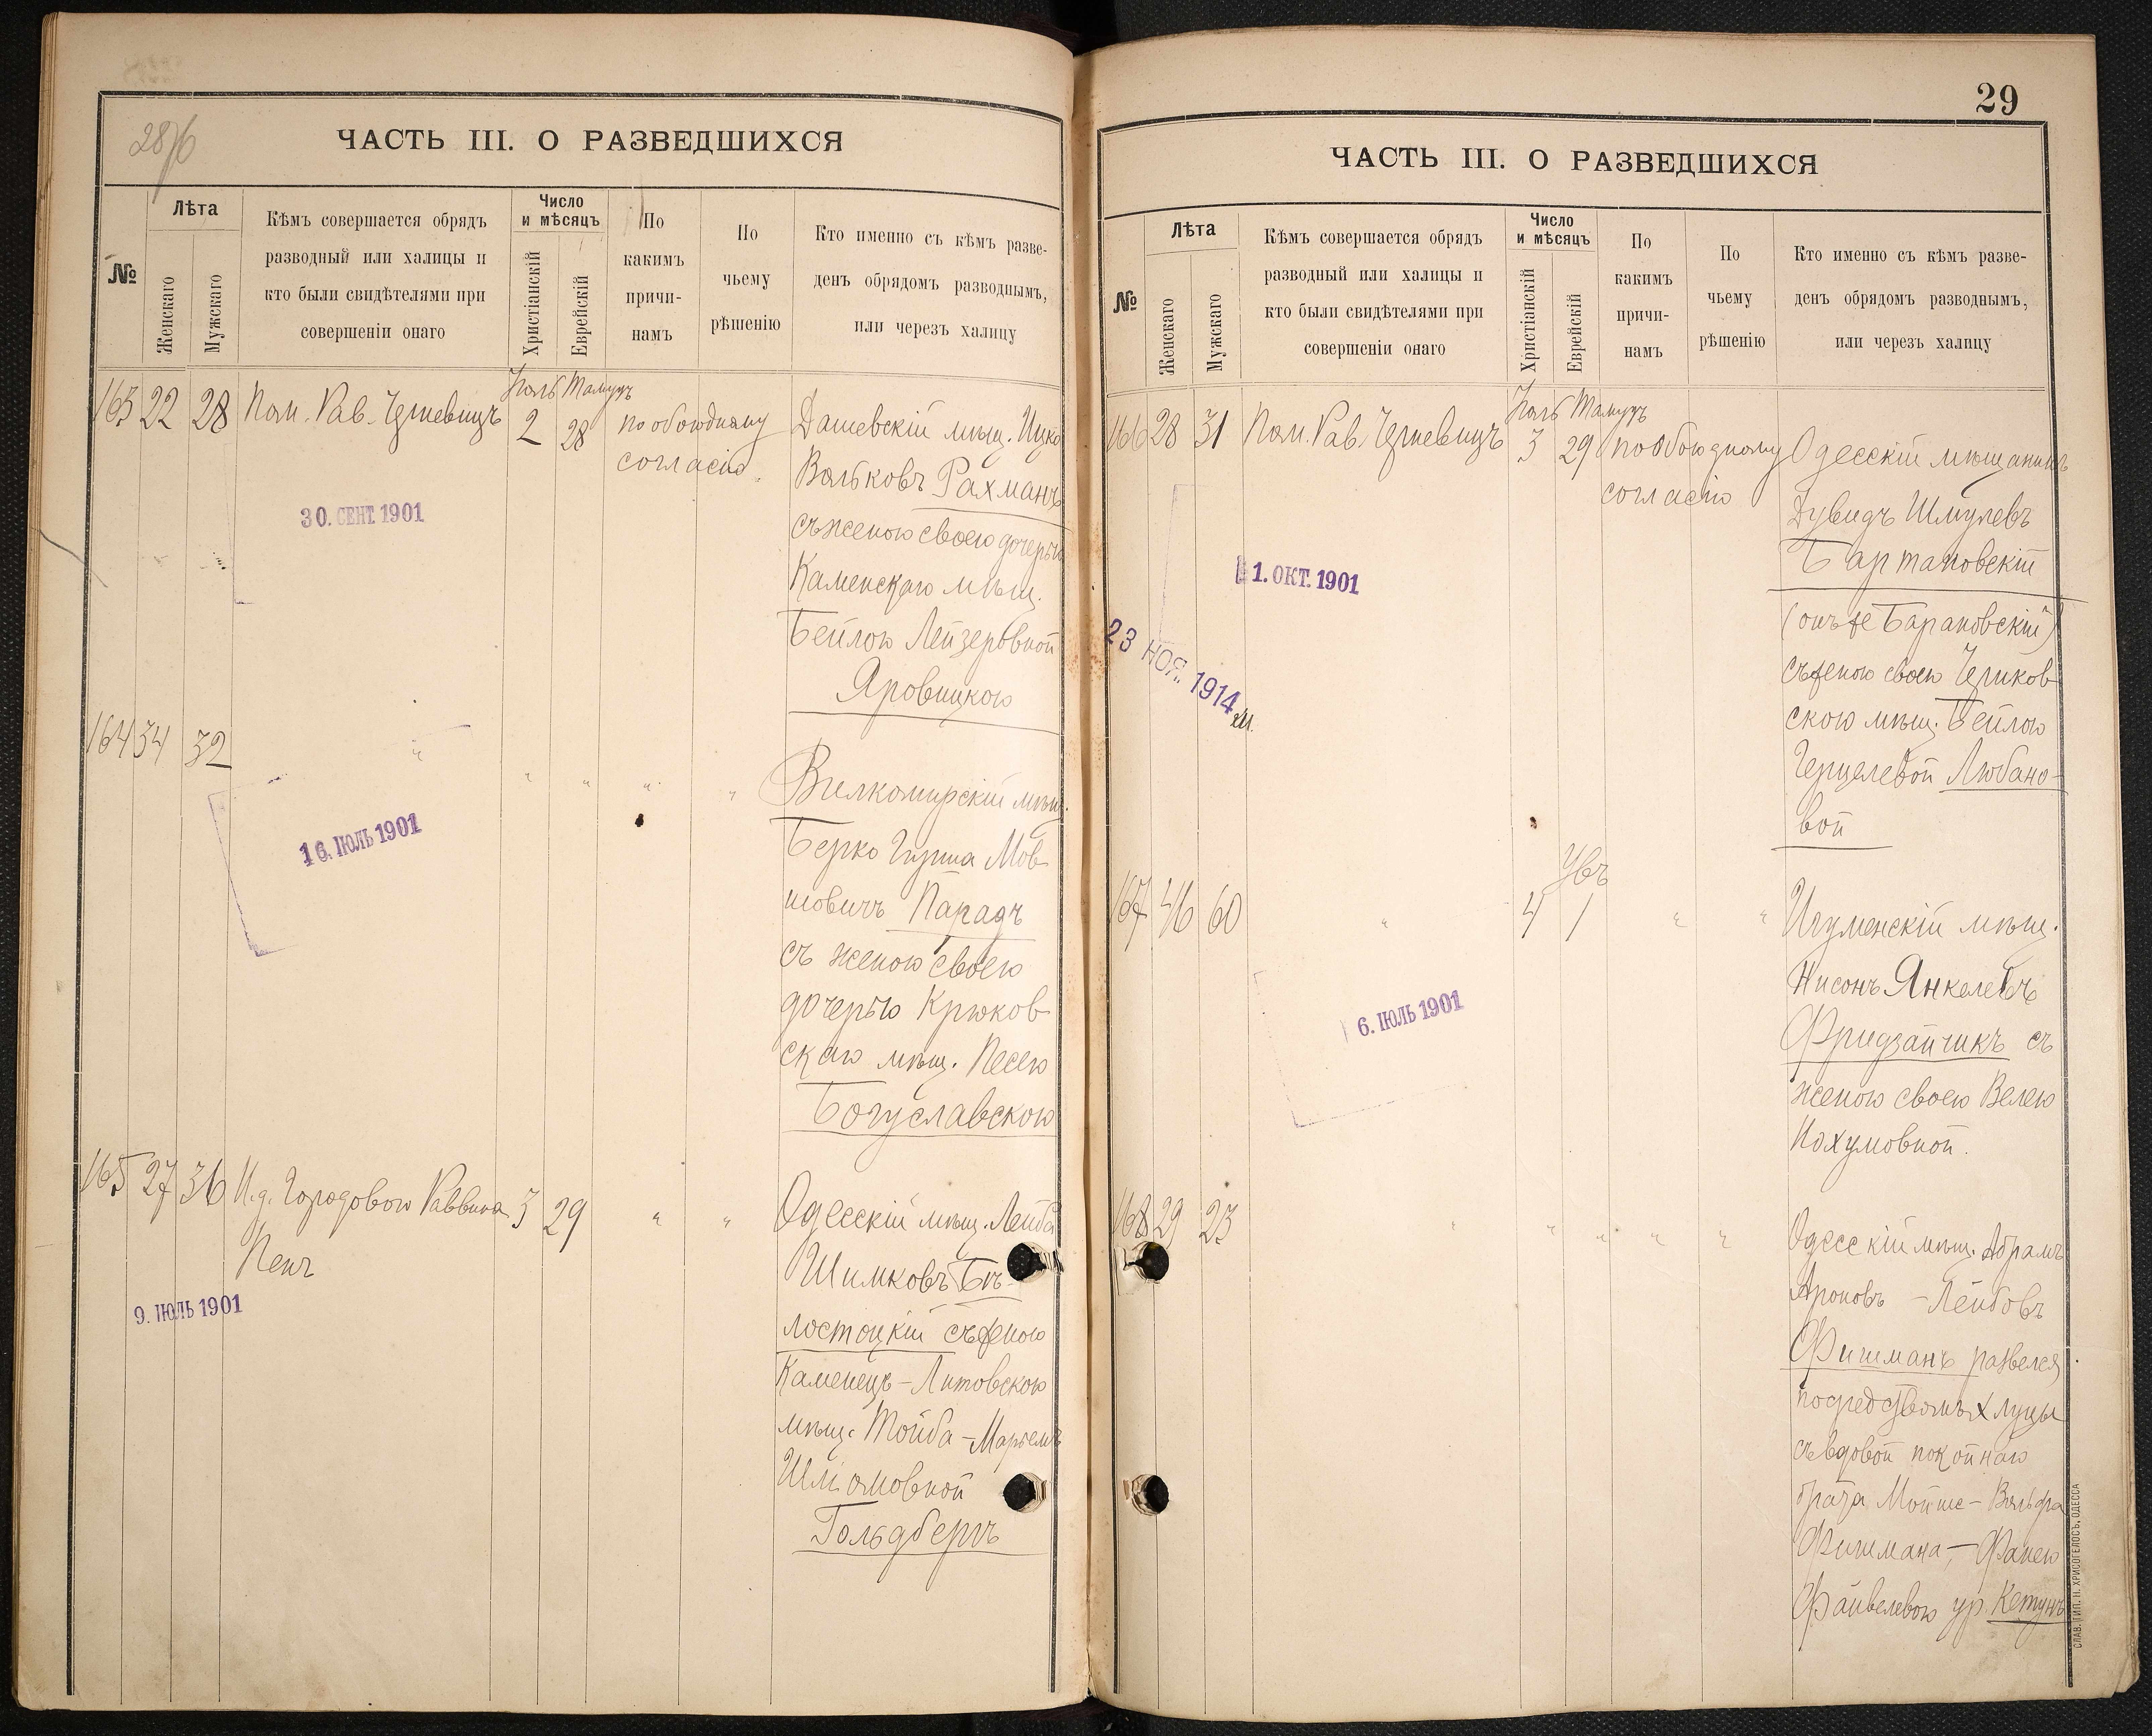 28 об
ЧАСТЬ III. О РАЗВЕДШИХСЯ
№
Лѣта
Женскаго
Мужскаго
Кѣмъ совершается обрядъ
разводный или халицы и
кто были свидѣтелями при
совершеніи онаго
Число
и мѣсяцъ
Христіанскій
Еврейскій
По
какимъ
причи-
намъ
По
чьему
рѣшенію
Кто именно съ кѣмъ разве-
денъ обрядомъ разводнымъ,
или черезъ халицу
163 22 28 Пом. Рав. Черневицъ
Іюль Тамузъ
2 28
по обоюдному
согласію
Дашевскій мѣщ. Ицко
Вольковъ Рахманъ
съ женою своею дочерью
Каменскаго мѣщ.
Бейлою Лейзеровной
Яровицкою
30. СЕНТ. 1901
164 34 32 " " " " "
Вилкомирскій мѣщ.
Берко Гирша Мов-
шовичъ Парадъ
съ женою своею
дочерью Крюков-
скаго мѣщ. Песею
Богуславскою
16. ІЮЛЬ 1901
165 27 36 И.д. Городового Раввина
Пенъ
3 29 " "
Одесскій мѣщ. Лейба
Шимковъ Бѣ-
лостоцкій съ женою
Каменецъ-Литовскою
мѣщ. Тойба-Марьемъ
Шліомовной
Гольдбергъ
9. ІЮЛЬ 1901
29
ЧАСТЬ III. О РАЗВЕДШИХСЯ
№
Лѣта
Женскаго
Мужскаго
Кѣмъ совершается обрядъ
разводный или халицы и
кто были свидѣтелями при
совершеніи онаго
Число
и мѣсяцъ
Христіанскій
Еврейскій
По
какимъ
причи-
намъ
По
чьему
рѣшенію
Кто именно съ кѣмъ разве-
денъ обрядомъ разводнымъ,
или черезъ халицу
166 28 31 Пом. Рав. Черневицъ
Іюль Тамузъ
3 29
по обоюдному
согласію
Одесскій мѣщанинъ
Дувидъ Шмулевъ
Бартановскій
(онъ же Барановскій)
съ женою своею Чериков-
скою мѣщ. Бейлою
Герцелевой Любано-
вой
1. ОКТ. 1901
23 НОЯ. 1914
167 46 60 "
Увъ
4 1 " "
Игуменскій мѣщ.
Нисонъ Янкелевъ
Фридзайчикъ съ
женою своею Велею
Нохумовной.
6. ІЮЛЬ 1901
168 29 23 " " " " "
Одесскій мѣщ. Абрамъ
Ароновъ-Лейбовъ
Фишманъ развелся
посредствомъ халицы
съ вдовой покойнаго
брата Мойше-Вольфа
Фишмана, - Фанею
Файвелевою ур. Кетунъ
СЛАВ. ТИП. Н. ХРИСОГЕЛОСЪ, ОДЕССА